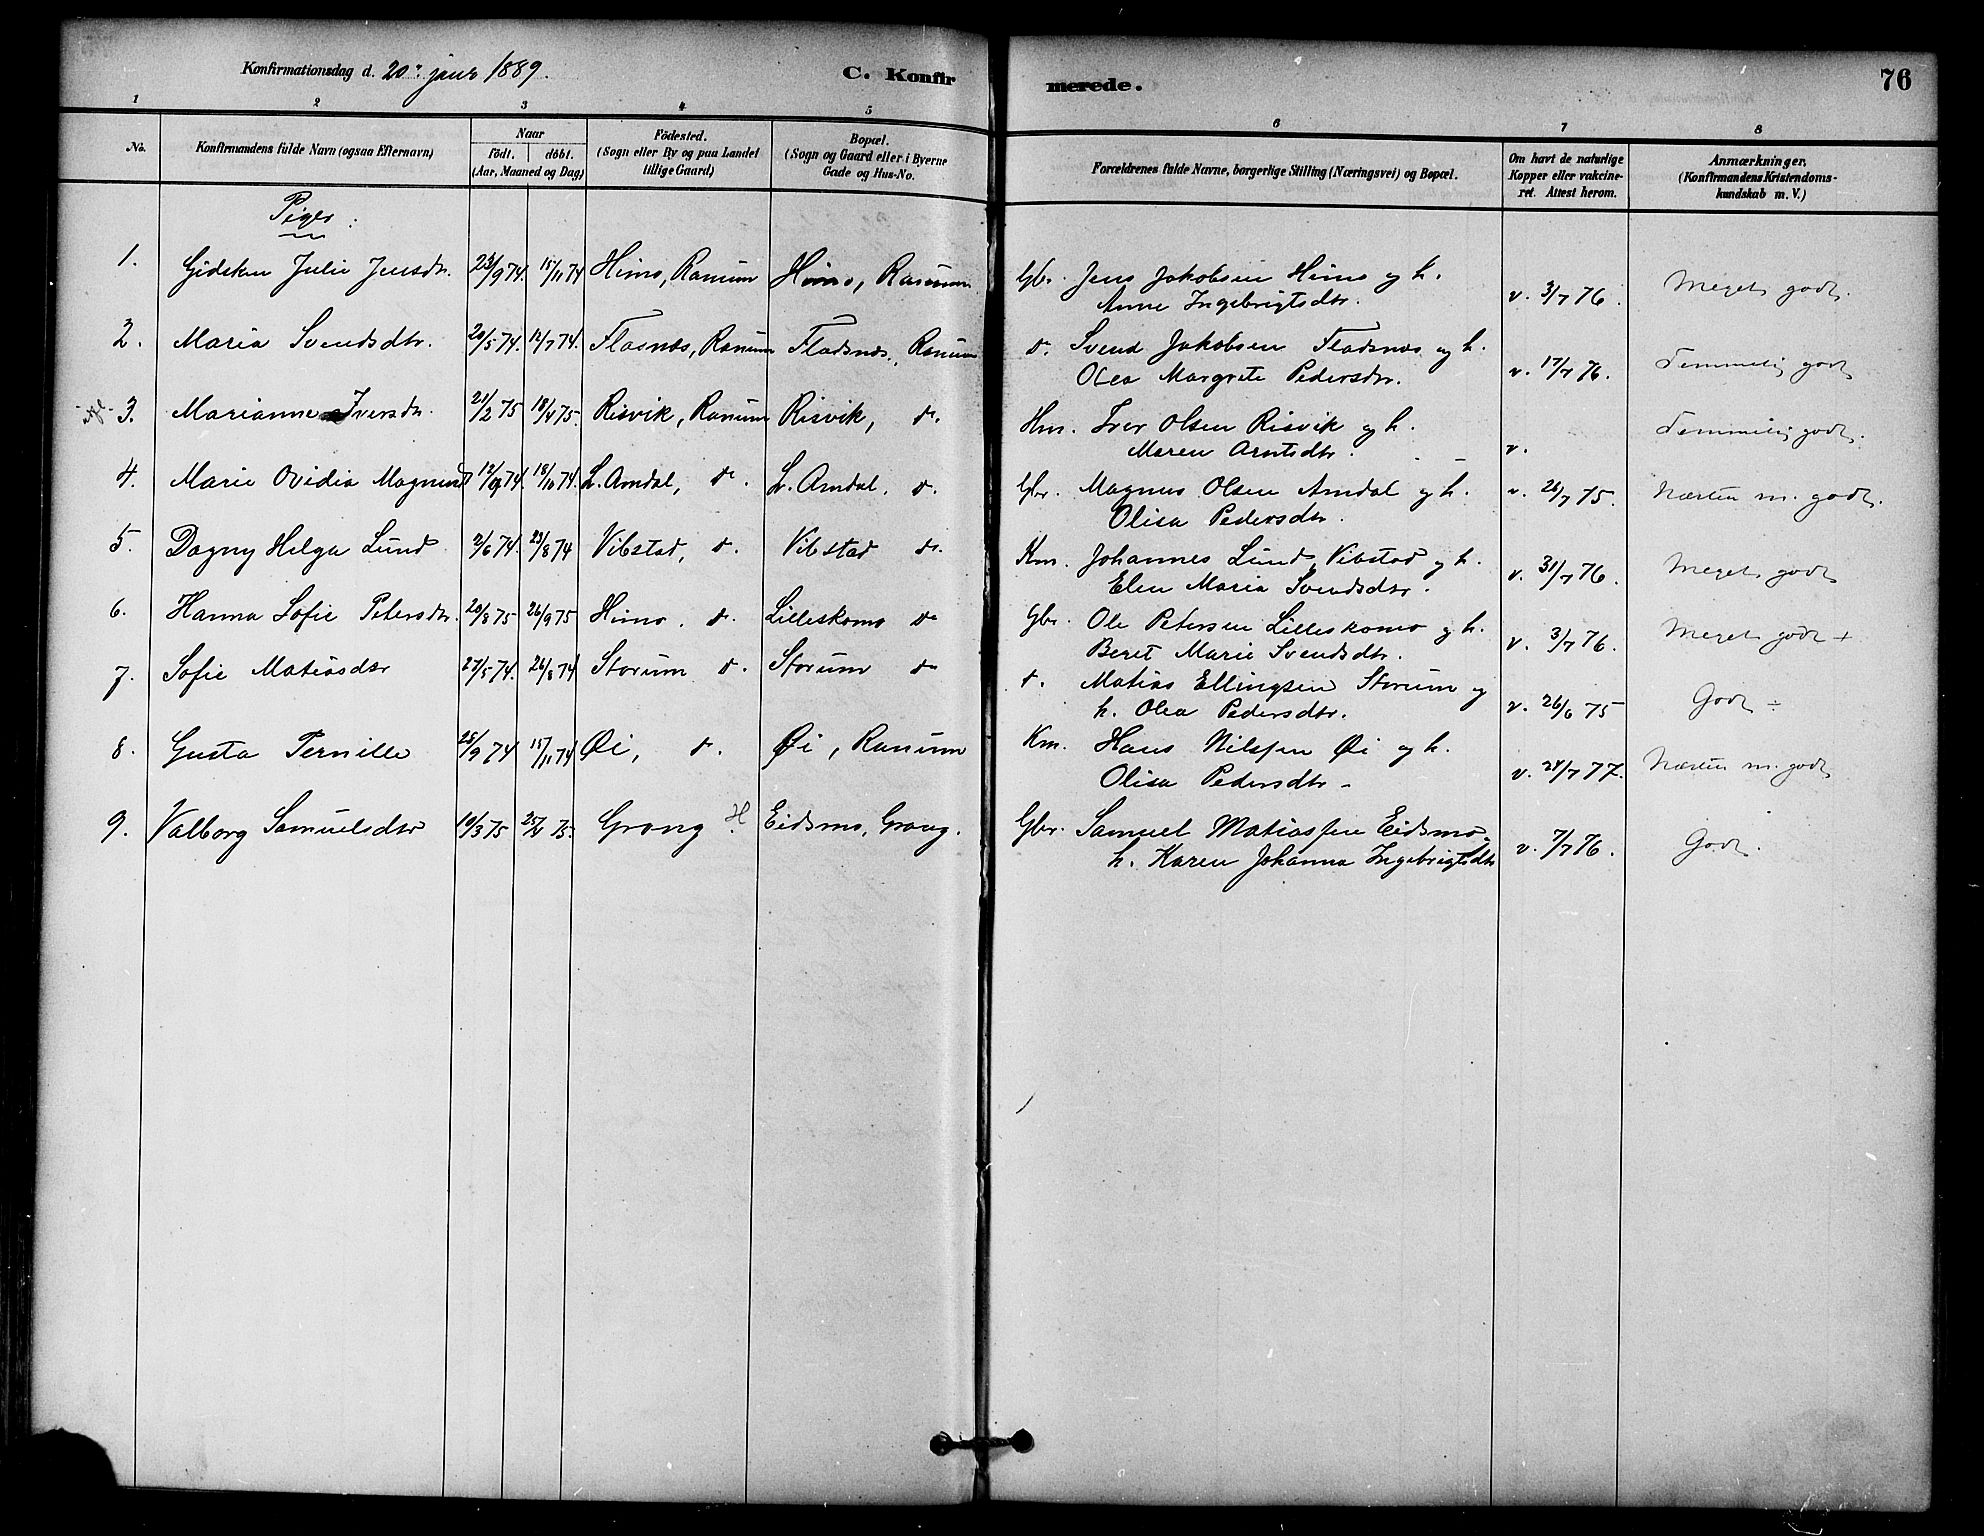 Konfirmationsdag d. 20. 1889.
C. Konfir merede. 76
1 2 3 4 5 6 7 8
No.
Konfirmandens fulde Navn (ogsaa Efternavn)
Naar
födt. döbt.
(Aar, Maaned og Dag)
Födested.
(Sogn eller By og paa Landet
tillige Gaard)
Bopæl.
(Sogn og Gaard eller i Byerne
Gade og Hus-No.
Forældrenes fulde Navne, borgerlige Stilling (Næringsvei) og Bopæl.
Om havt de naturlige
Kopper eller vakcine-
ret. Attest herom.
Anmærkninger.
(Konfirmandens Kristendoms-
kundskab m. V.)
Piger.
1. Gidsken Julie Jensdr. 23/9 74. 15/11 74 Himo, Ranum Himo, Ranum Gbr. Jens Jakobsen Himo og h. v. 3/7 76. Meget godt.
Anne Ingebrigtsdtr.
2. Maria Svendsdtr. 20/5 74. 12/7 74. Flasnæs, Ranum Fladsnæs, Ranum d. Svend Jakobsen Fladsnæs og h. v. 17/7 76. Temmelig godt
Olea Margrete Pedersdtr.
3. Marianne Iversdr. 21/2 75 18/4 75. Risvik, Ranum Risvik, do. Hm. Iver Olsen Risvik og h. v. Temmelig godt.
Maren Arntsdtr.
4. Marie Ovidia Magnusd 12/9 74. 18/10 74. L. Amdal, do. L. Amdal. do. Gbr. Magnus Olsen Amdal og h. v. 26/7 75. Næsten m. godt.
Olisa Pedersdtr.
5. Dagny Helga Lund 2/6 74. 23/8 74 Vibstad, do. Vibstad do. Km. Johannes Lund, Vibstad og h. v. 31/7 76. Meget godt
Elen Maria Svendsdtr.
6. Hanna Sofie Petersdr. 20/8 75 26/9 75 Himo. do. Lilleskomo do Gbr. Ole Petersen Lilleskomo og h. v. 3/7 76. Meget godt +
Beret Marie Svendsdtr.
7. Sofie Matiasdtr 27/5 74. 26/8 74 Storum do. Storum do d. Matias Ellingsen Storum og v. 26/6 75 Godt ÷
h. Olea Pedersdtr.
8. Gusta Pernille 25/9 74 15/11 74 Øi, do. Øi, Ranum Km. Hans Nilssen Øi og h. v. 24/7 77. Næsten m. godt
Olisa Pedersdtr -
9. Valborg Samuelsdtr 19/3 75 Grong Eidsmo, Grong. Gbr. Samuel Matiassen Eidsmo v. 7/7 76. Godt.
h. Karen Johanna Ingebrigtsdtr